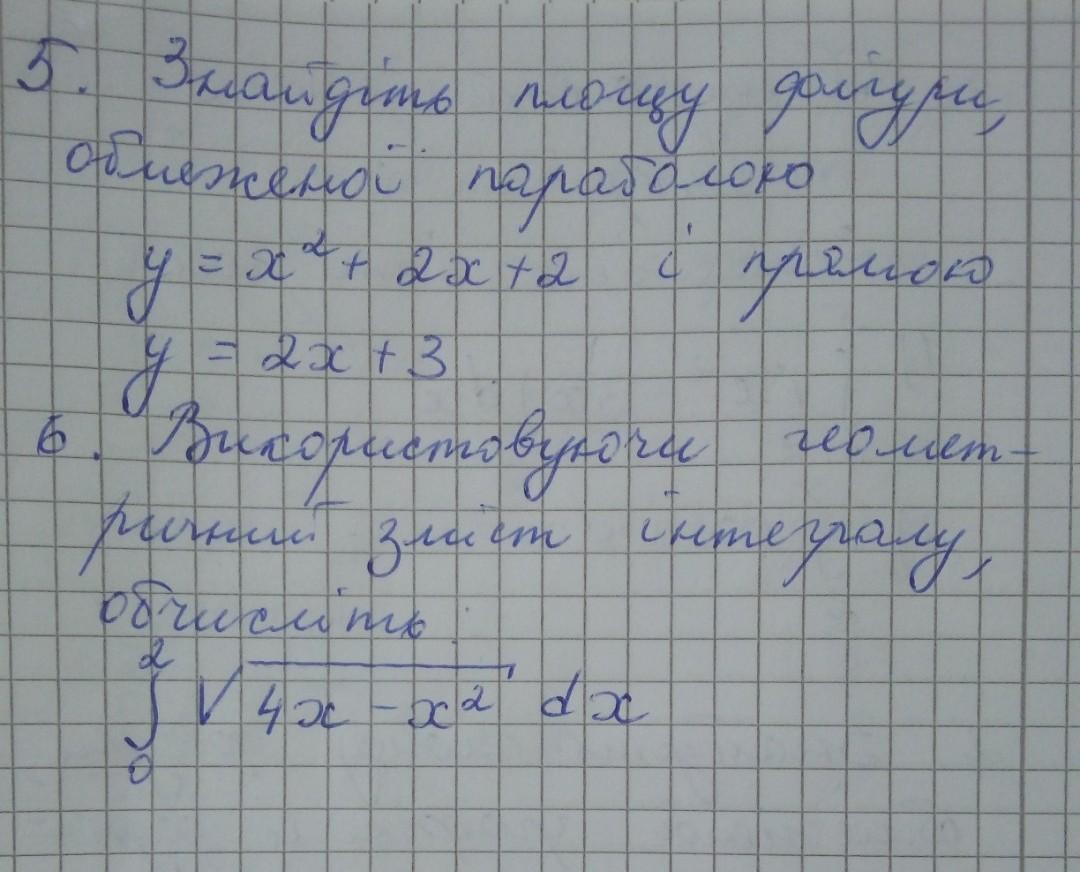 5. Знайдіть площу фігури,
обмеженої параболою
y = x² + 2x + 2 і прямою
y = 2x + 3
6. Використовуючи геомет-
ричний зміст інтегралу,
обчисліть
∫₀² √(4x - x²) dx